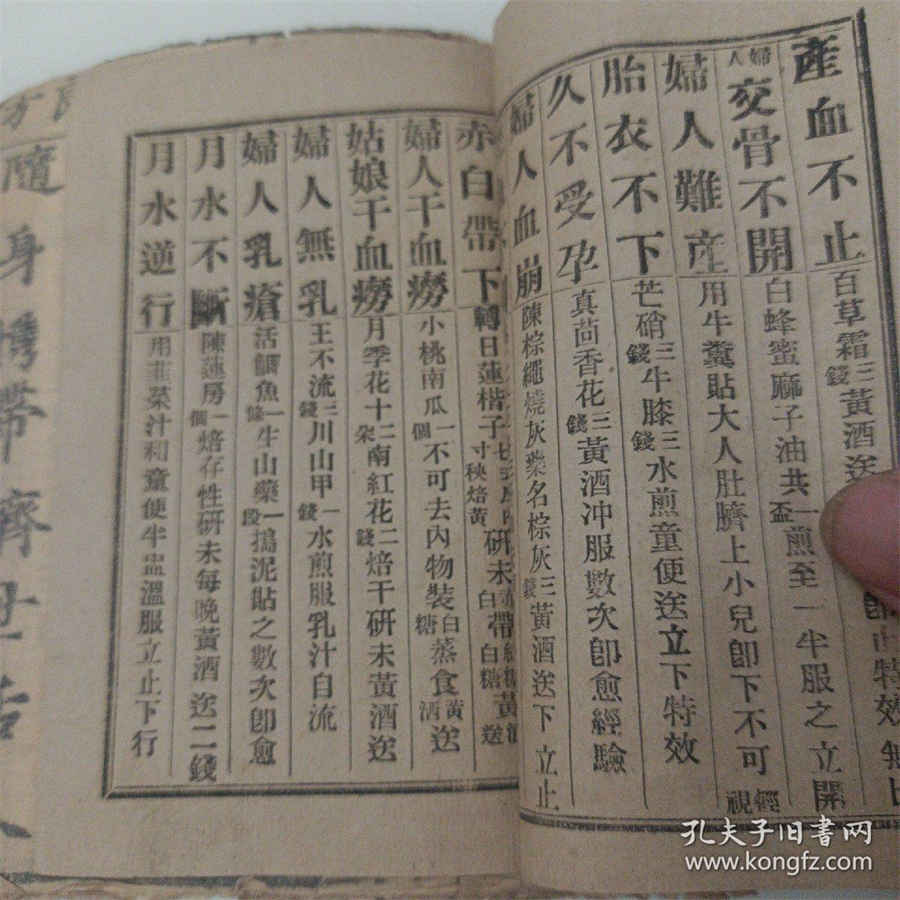 產血不止 百草霜三錢黃酒送 特效
婦人交骨不開 白蜂蜜麻子油共一盃煎至一半服之立開
婦人難產 用牛糞貼大人肚臍上小兒卽下不可輕視
胎衣不下 芒硝三錢牛膝三錢水煎童便送立下特效
久不受孕 真茴香花三錢黃酒冲服數次卽愈經驗
婦人血崩 陳棕繩燒灰藥名棕灰三錢黃酒送下立止
赤白帶下 轉日蓮楷子寸秧焙黃研末 帶 白糖 送
婦人干血癆 小桃南瓜一個不可去內物裝白糖蒸食黃酒送
姑娘干血癆 月季花十二朵南紅花二錢焙干研末黃酒送
婦人無乳 王不流三錢川山甲一錢水煎服乳汁自流
婦人乳瘡 活鯽魚一條牛山藥一段搗泥貼之數次卽愈
月水不斷 陳蓮房一個焙存性研末每晚黃酒送二錢
月水逆行 用韭菜汁和童便半盅溫服立止下行
方
隨身攜帶濟世活人
孔夫子旧书网
www.kongfz.com